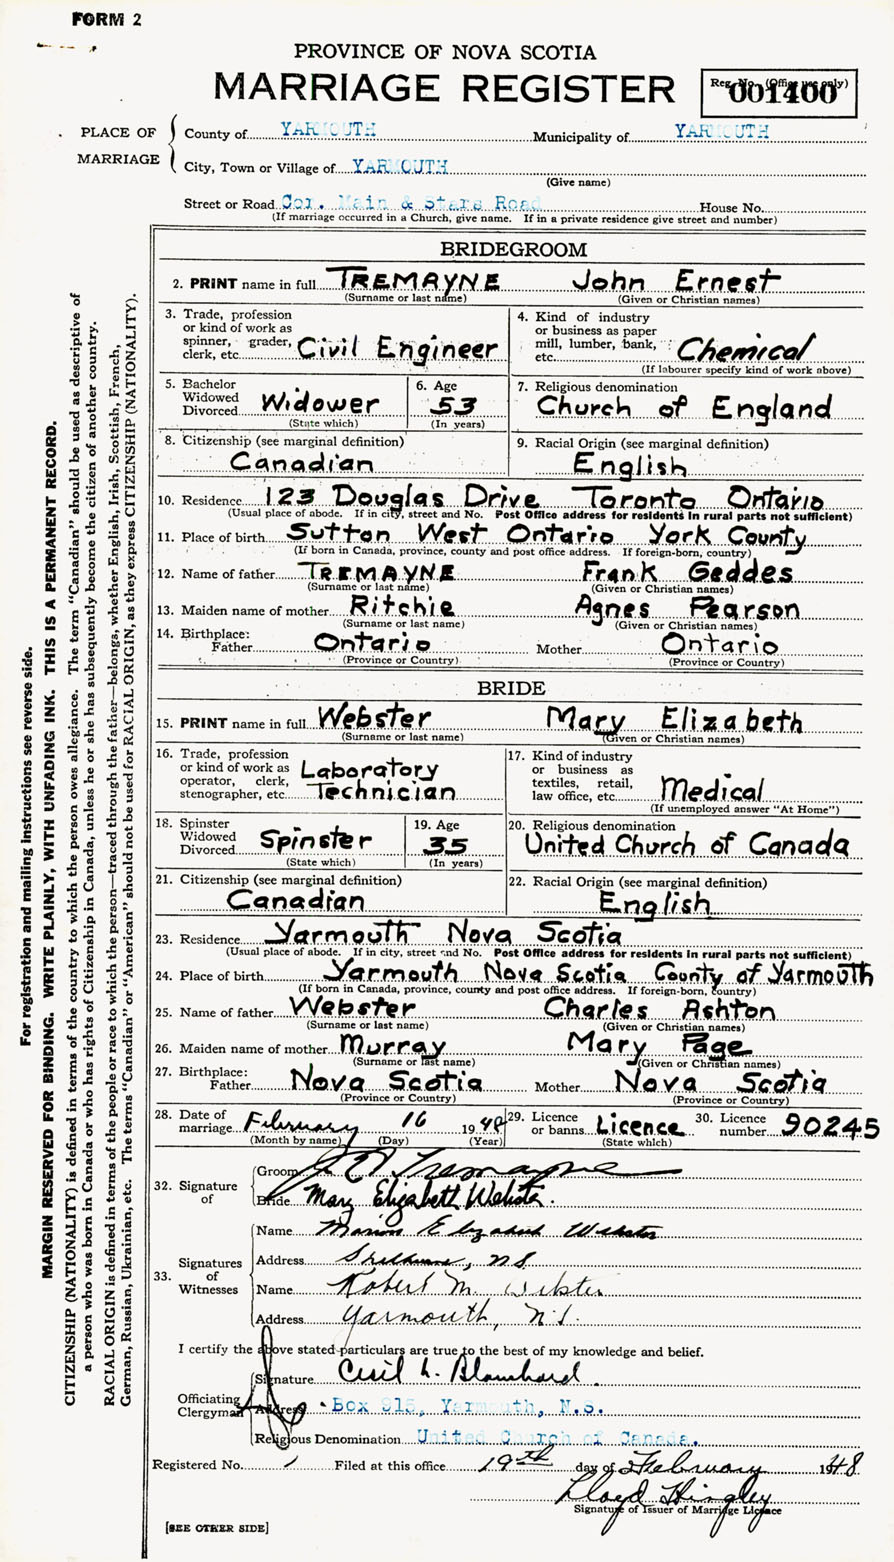 FORM 2
PROVINCE OF NOVA SCOTIA
MARRIAGE REGISTER
Reg. No. (Office use only)
001400
PLACE OF MARRIAGE
County of YARMOUTH Municipality of YARMOUTH
City, Town or Village of YARMOUTH
(Give name)
Street or Road Cor. Main & Stars Road House No.
(If marriage occurred in a Church, give name. If in a private residence give street and number)
BRIDEGROOM
2. PRINT name in full TREMAYNE John Ernest
(Surname or last name) (Given or Christian names)
3. Trade, profession or kind of work as spinner, grader, clerk, etc. Civil Engineer
4. Kind of industry or business as paper mill, lumber, bank, etc. Chemical
(If labourer specify kind of work above)
5. Bachelor Widowed Divorced Widower
(State which)
6. Age 53
(In years)
7. Religious denomination
Church of England
8. Citizenship (see marginal definition)
Canadian
9. Racial Origin (see marginal definition)
English
10. Residence 123 Douglas Drive Toronto Ontario
(Usual place of abode. If in city, street and No. Post Office address for residents in rural parts not sufficient)
11. Place of birth Sutton West Ontario York County
(If born in Canada, province, county and post office address. If foreign-born, country)
12. Name of father TREMAYNE Frank Geddes
(Surname or last name) (Given or Christian names)
13. Maiden name of mother Ritchie Agnes Pearson
(Surname or last name) (Given or Christian names)
14. Birthplace:
Father Ontario Mother Ontario
(Province or Country) (Province or Country)
BRIDE
15. PRINT name in full Webster Mary Elizabeth
(Surname or last name) (Given or Christian names)
16. Trade, profession or kind of work as operator, clerk, stenographer, etc. Laboratory Technician
17. Kind of industry or business as textiles, retail, law office, etc. Medical
(If unemployed answer "At Home")
18. Spinster Widowed Divorced Spinster
(State which)
19. Age 35
(In years)
20. Religious denomination
United Church of Canada
21. Citizenship (see marginal definition)
Canadian
22. Racial Origin (see marginal definition)
English
23. Residence Yarmouth Nova Scotia
(Usual place of abode. If in city, street and No. Post Office address for residents in rural parts not sufficient)
24. Place of birth Yarmouth Nova Scotia County of Yarmouth
(If born in Canada, province, county and post office address. If foreign-born, country)
25. Name of father Webster Charles Ashton
(Surname or last name) (Given or Christian names)
26. Maiden name of mother Murray Mary Page
(Surname or last name) (Given or Christian names)
27. Birthplace:
Father Nova Scotia Mother Nova Scotia
(Province or Country) (Province or Country)
28. Date of marriage February 16 1948
(Month by name) (Day) (Year)
29. Licence or banns Licence
(State which)
30. Licence number 90245
32. Signature of
Groom J E Tremayne
Bride Mary Elizabeth Webster.
33. Signatures of Witnesses
Name Marion Elizabeth Webster
Address Shelburne, NS
Name Robert M. Webster
Address Yarmouth, N.S.
I certify the above stated particulars are true to the best of my knowledge and belief.
Officiating Clergyman
Signature Cecil L. Blanchard
Address Box 915, Yarmouth, N.S.
Religious Denomination United Church of Canada.
Registered No. 1 Filed at this office 19th day of February 1948
Lloyd Hingley
Signature of Issuer of Marriage Licence
[SEE OTHER SIDE]
For registration and mailing instructions see reverse side.
MARGIN RESERVED FOR BINDING. WRITE PLAINLY, WITH UNFADING INK. THIS IS A PERMANENT RECORD.
CITIZENSHIP (NATIONALITY) is defined in terms of the country to which the person owes allegiance. The term "Canadian" should be used as descriptive of
a person who was born in Canada or who has rights of Citizenship in Canada, unless he or she has subsequently become the citizen of another country.
RACIAL ORIGIN is defined in terms of the people or race to which the person—traced through the father—belongs, whether English, Irish, Scottish, French,
German, Russian, Ukrainian, etc. The terms "Canadian" or "American" should not be used for RACIAL ORIGIN, as they express CITIZENSHIP (NATIONALITY).